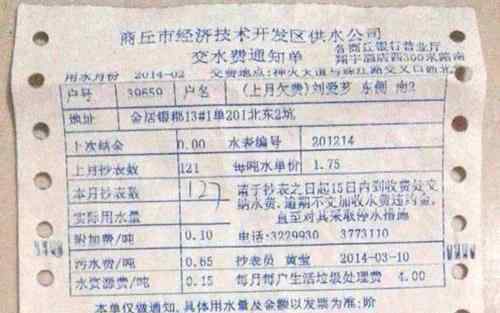 商丘市经济技术开发区供水公司
交水费通知单
各商丘银行营业厅
翔宇酒店西300米路南
用水月份 2014-02 交费地点:神火大道与珠江路交叉口西北
户号 39659 户名 (上月欠费)刘爱芝 东侧 南2
地址 金居银郡13#1单201北东2坑
上次结余 0.00 水表编号 201214
上月抄表数 121 每吨水单价 1.75
本月抄表数 127 请于抄表之日起15日内到收费处交
纳水费,逾期不交加收水费违约金,
实际用水量 直至对其采取停水措施
附加费/吨 0.10 电话:3229930 3773110
污水费/吨 0.65 抄表员 黄莹 2014-03-10
水资源费/吨 0.15 每月每户生活垃圾处理费 4.00
本单仅做通知,具体用水量及金额以发票为准:阶